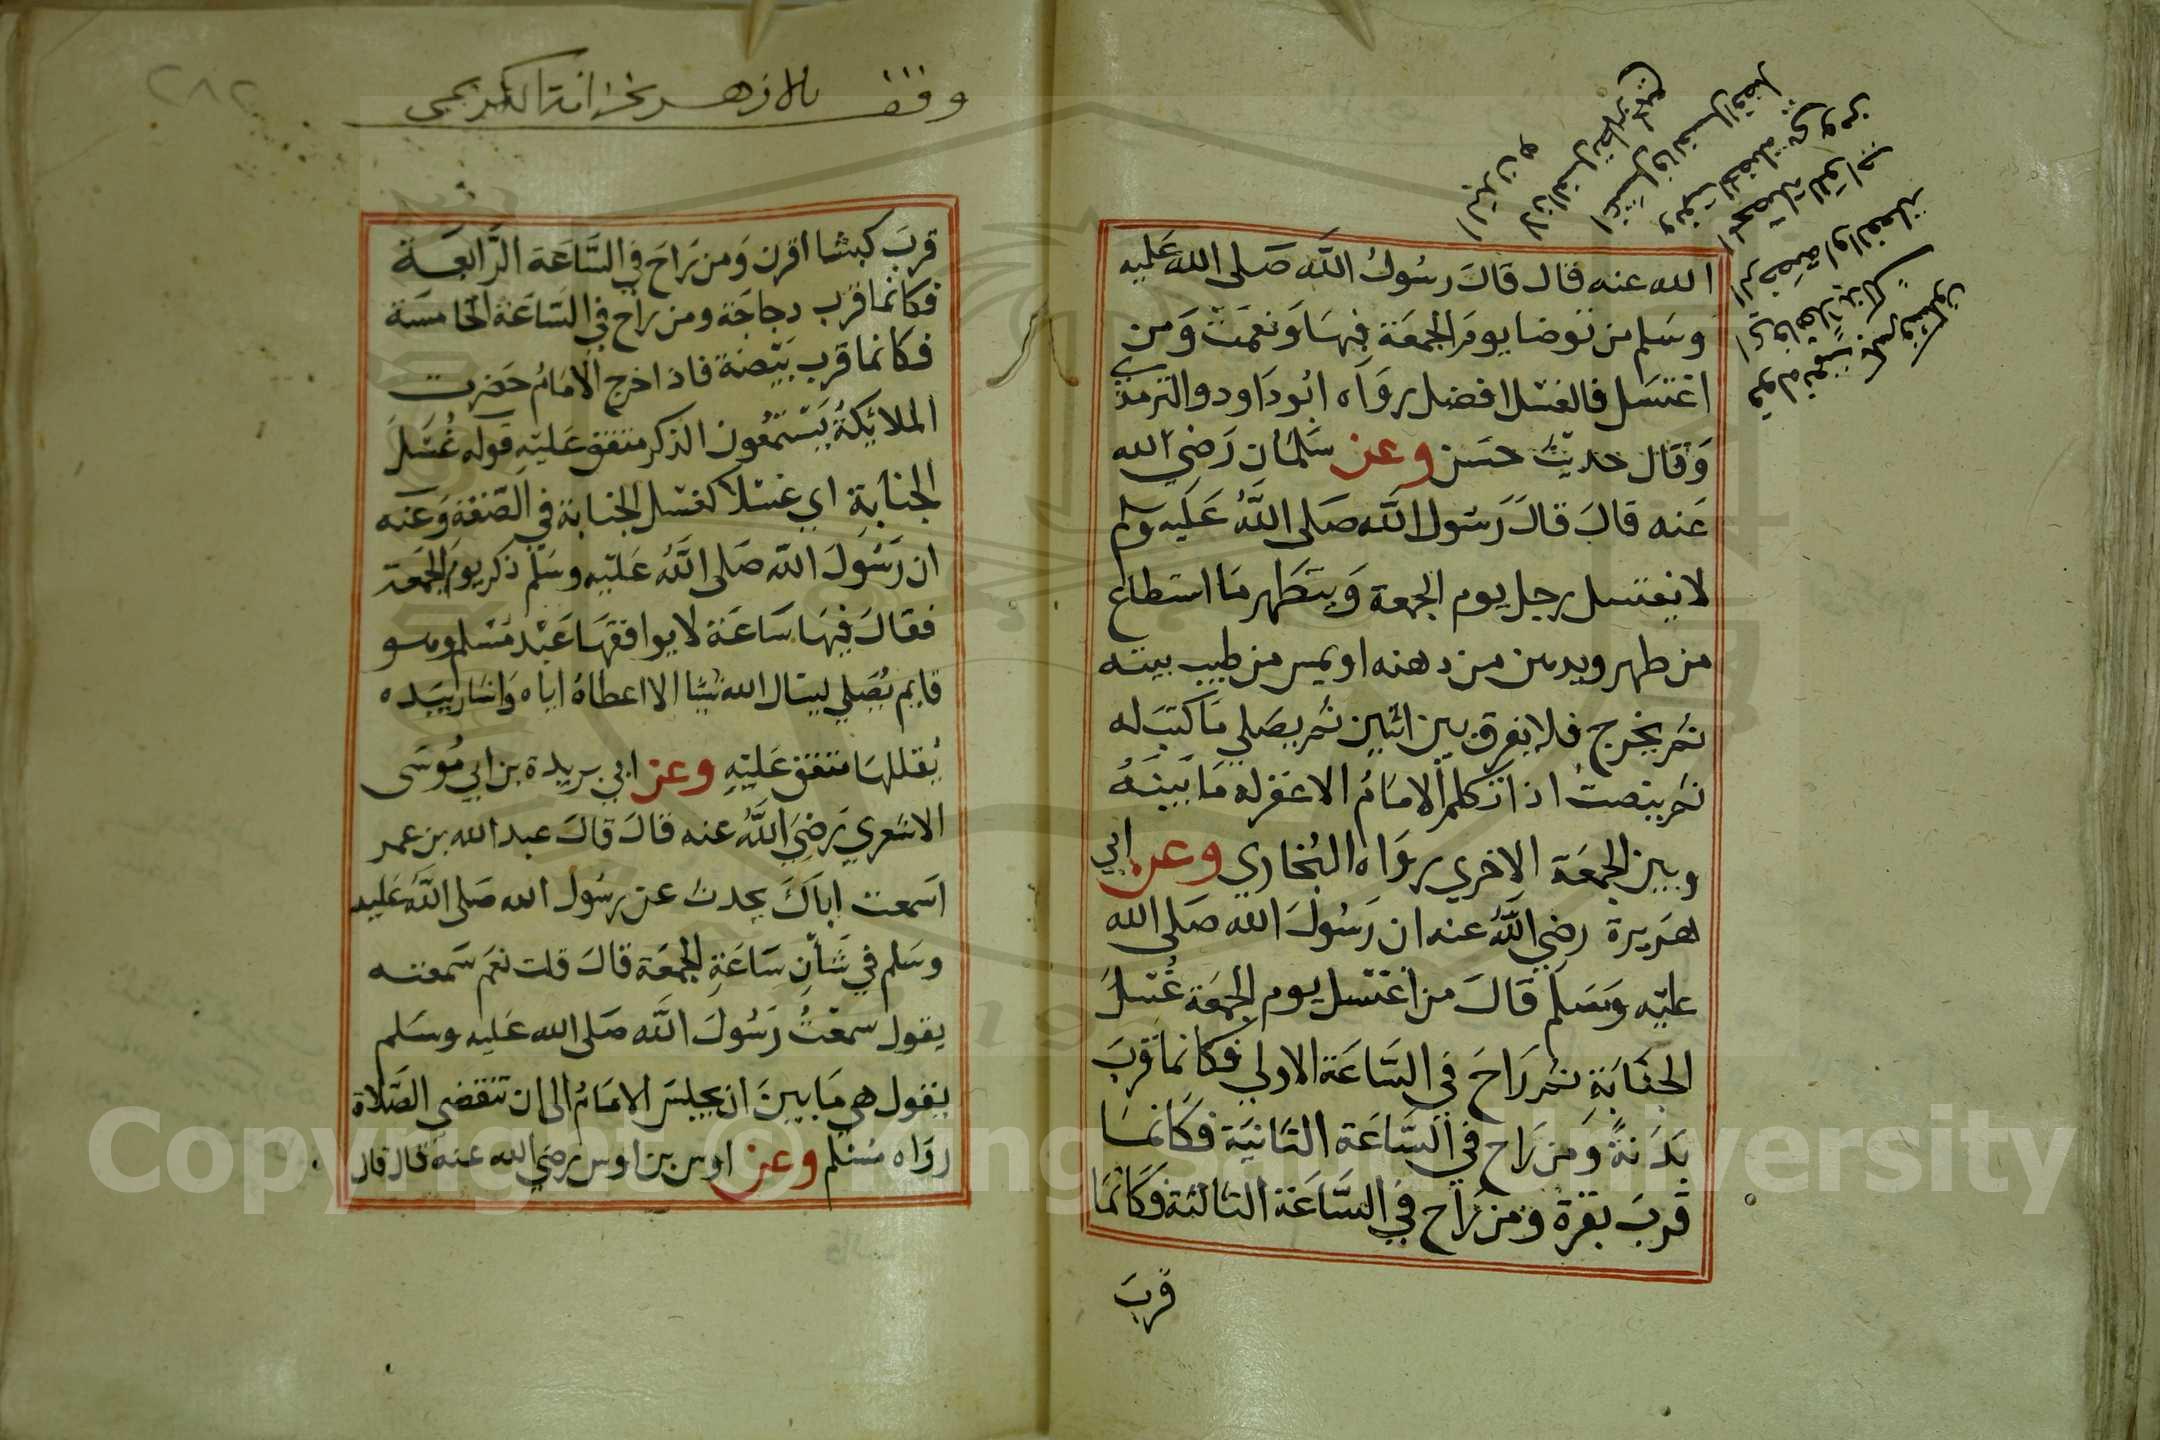 الله عنه قال قال رسول الله صلى الله عليه
وسلم من توضا يوم الجمعة فبها ونعمت ومن
اغتسل فالغسل افضل رواه ابو داود والترمذي
وقال حديث حسن وعن سلمان رضي الله
عنه قال قال رسول الله صلى الله عليه وسلم
لا يغتسل رجل يوم الجمعة ويتطهر ما استطاع
من طهر ويدهن من دهنه او يمس من طيب بيته
ثم يخرج فلا يفرق بين اثنين ثم يصلي ما كتب له
ثم ينصت اذا تكلم الامام الا غفر له ما بينه
وبين الجمعة الاخري رواه البخاري وعن ابي
هريرة رضي الله عنه ان رسول الله صلى الله
عليه وسلم قال من اغتسل يوم الجمعة غسل
الجنابة ثم راح في الساعة الاولي فكانما قرب
بدنة ومن راح في الساعة الثانية فكانما
قرب بقرة ومن راح في الساعة الثالثة فكانما
قرب
وقف بالازهر بخزانة
٢٨٢
قرب كبشا اقرن ومن راح في الساعة الرابعة
فكانما قرب دجاجة ومن راح في الساعة الخامسة
فكانما قرب بيضة فاذا خرج الامام حضرت
الملائكة يستمعون الذكر متفق عليه قوله غسل
الجنابة اي غسلا كغسل الجنابة في الصفة وعنه
ان رسول الله صلى الله عليه وسلم ذكر يوم الجمعة
فقال فيها ساعة لا يوافقها عبد مسلم وهو
قايم يصلي يسال الله شيا الا اعطاه اياه واشار بيده
يقللها متفق عليه وعن ابي بريدة بن ابي موسى
الاشعري رضي الله عنه قال قال عبد الله بن عمر
اسمعت اباك يحدث عن رسول الله صلى الله عليه
وسلم في شان ساعة الجمعة قال قلت نعم سمعته
يقول سمعت رسول الله صلى الله عليه وسلم
يقول هي ما بين ان يجلس الامام الى ان تنقضي الصلاة
رواه مسلم وعن اوس بن اوس رضي الله عنه قال قال
Copyright © King Saud University